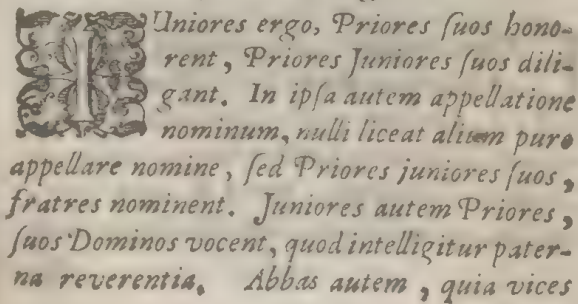 IUniores ergo, Priores ſuos hono-
rent, Priores Juniores ſuos dili-
gant. In ipſa autem appellatione
nominum, nulli liceat alium puro
appellare nomine, ſed Priores juniores ſuos,
fratres nominent. Juniores autem Priores,
ſuos Dominos vocent, quod intelligitur pater-
na reverentia. Abbas autem, quia vices